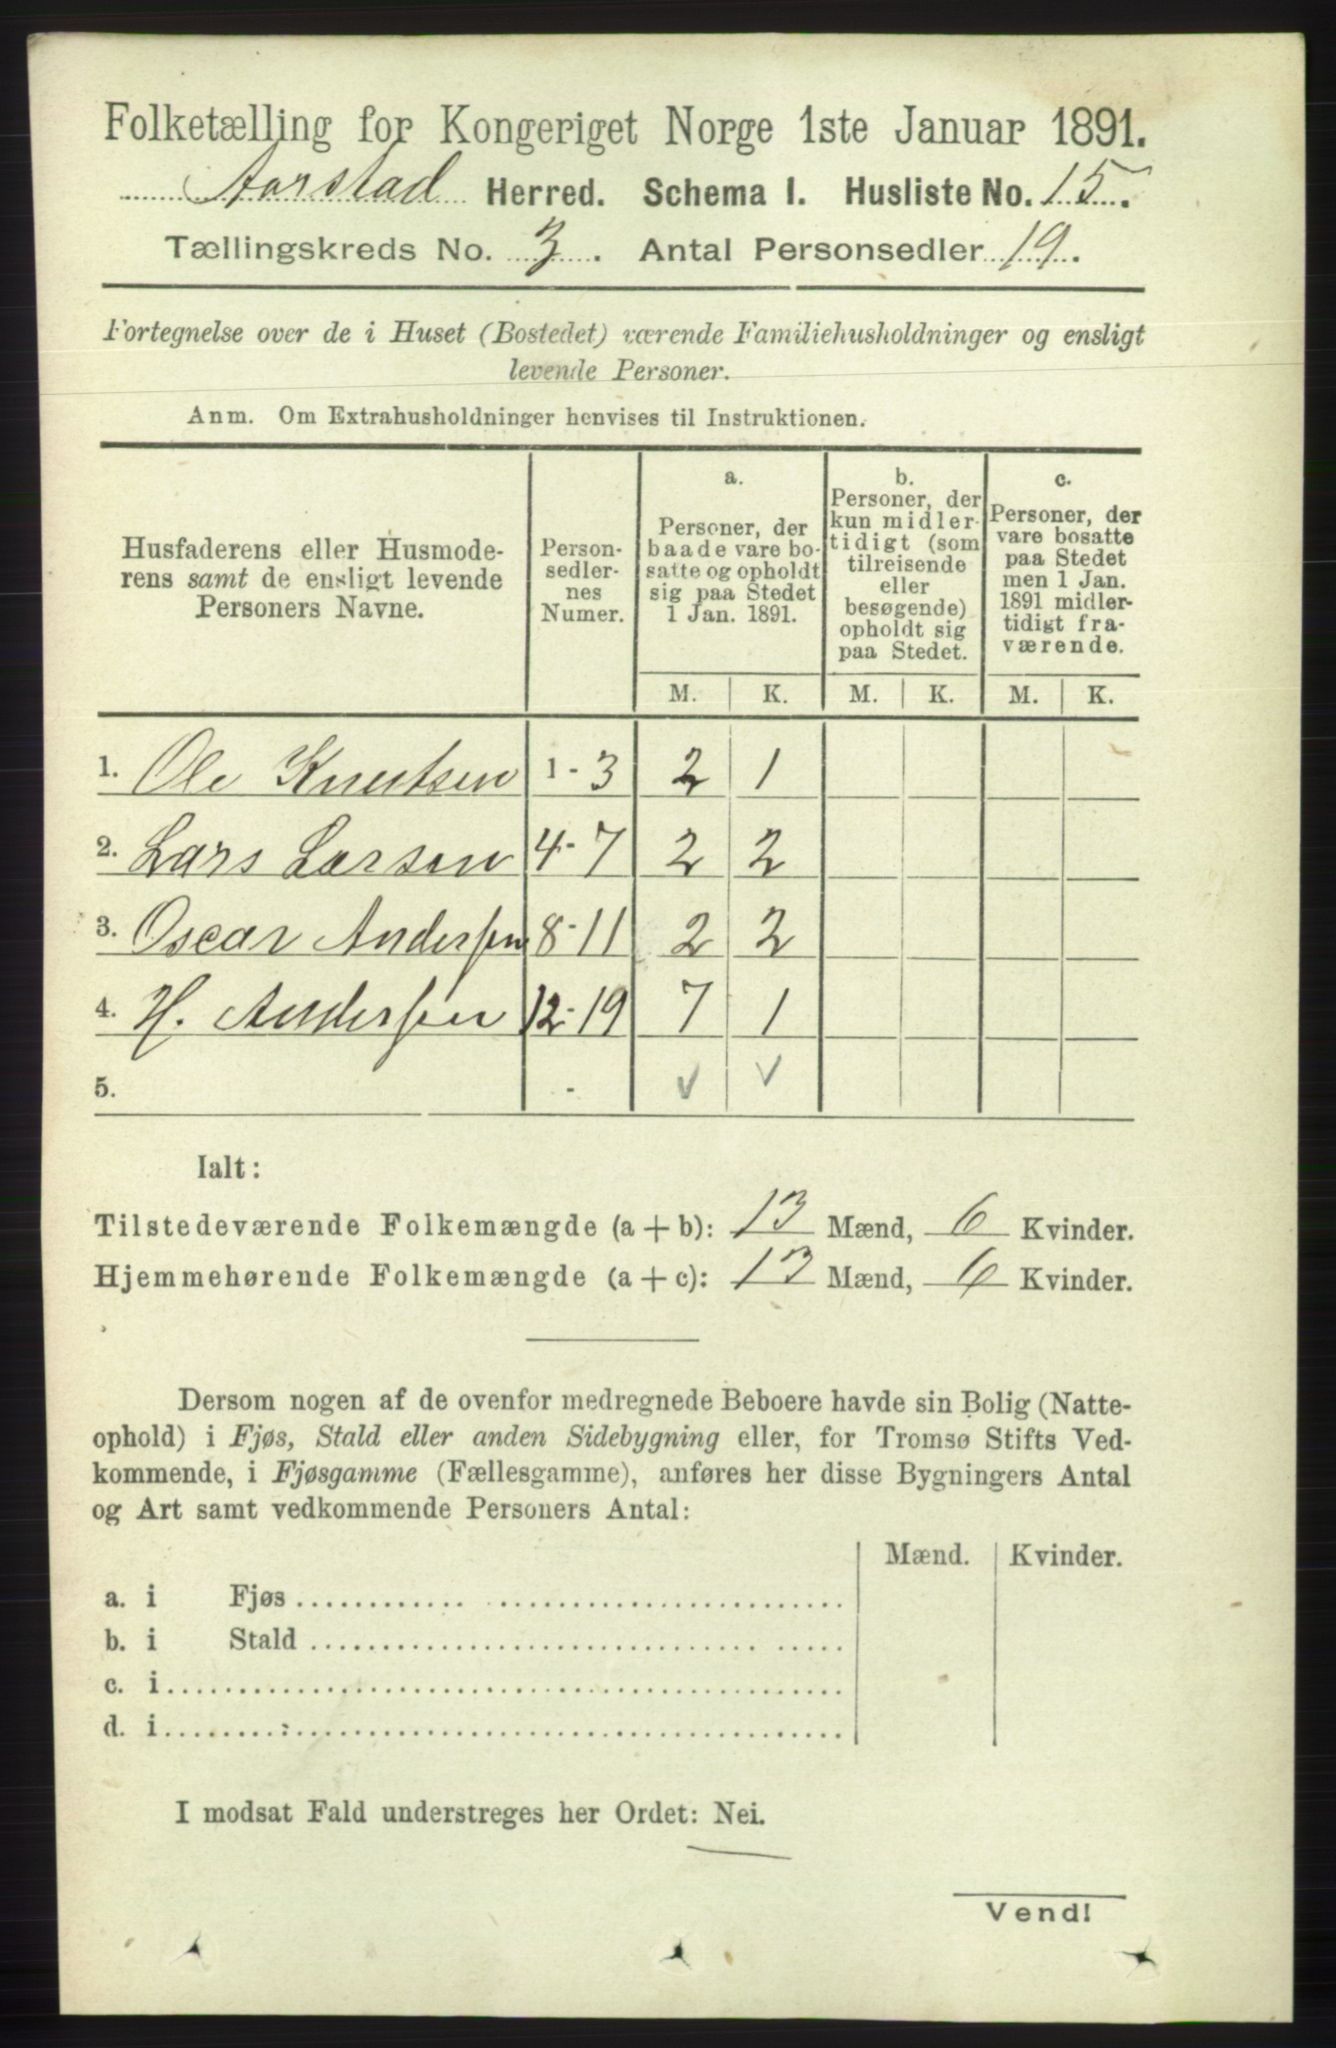 Folketælling for Kongeriget Norge 1ste Januar 1891.
Aarstad Herred. Schema I. Husliste No. 15.
Tællingskreds No. 3. Antal Personsedler 19.
Fortegnelse over de i Huset (Bostedet) værende Familiehusholdninger og ensligt
levende Personer.
Anm. Om Extrahusholdninger henvises til Instruktionen.
Husfaderens eller Husmode-
rens samt de ensligt levende
Personers Navne.
Person-
sedler-
nes
Numer.
a.
Personer, der
baade vare bo-
satte og opholdt
sig paa Stedet
1 Jan. 1891.
b.
Personer, der
kun midler-
tidigt (som
tilreisende
eller
besøgende)
opholdt sig
paa Stedet.
c.
Personer, der
vare bosatte
paa Stedet
men 1 Jan.
1891 midler-
tidigt fra-
værende.
M. K. M. K. M. K.
1. Ole Knutsen 1-3 2 1
2. Lars Larsen 4-7 2 2
3. Oscar Andersen 8-11 2 2
4. H. Andersen 12-19 7 1
5. - ✓ ✓
Ialt:
Tilstedeværende Folkemængde (a + b): 13 Mænd, 6 Kvinder.
Hjemmehørende Folkemængde (a + c): 13 Mænd, 6 Kvinder.
Dersom nogen af de ovenfor medregnede Beboere havde sin Bolig (Natte-
ophold) i Fjøs, Stald eller anden Sidebygning eller, for Tromsø Stifts Ved-
kommende, i Fjøsgamme (Fællesgamme), anføres her disse Bygningers Antal
og Art samt vedkommende Personers Antal:
Mænd. Kvinder.
a. i Fjøs
b. i Stald
c. i
d. i
I modsat Fald understreges her Ordet: Nei.
Vend!